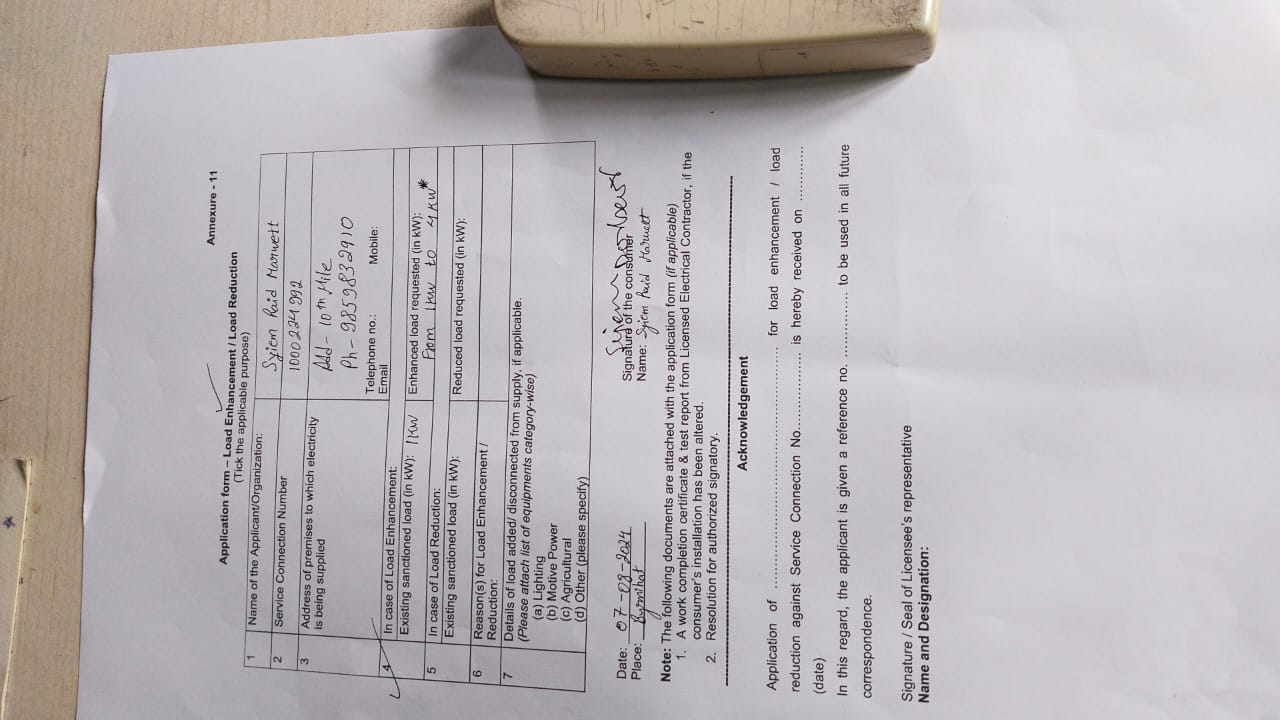 Annexure - 11
Application form – Load Enhancement / Load Reduction
(Tick the applicable purpose)
1 Name of the Applicant/Organization: Syiem Raid Marwett
2 Service Connection Number 1000224992
3 Address of premises to which electricity is being supplied
Add - 10th Mile
Ph - 9859832910
Telephone no.: Mobile:
Email
4 In case of Load Enhancement:
Existing sanctioned load (in kW): 1KW Enhanced load requested (in kW):
From 1KW to 4KW*
5 In case of Load Reduction:
Existing sanctioned load (in kW): Reduced load requested (in kW):
6 Reason(s) for Load Enhancement /
Reduction:
7 Details of load added/ disconnected from supply, if applicable.
(Please attach list of equipments category-wise)
(a) Lighting
(b) Motive Power
(c) Agricultural
(d) Other (please specify)
Date: 07-08-2024 Signature of the consumer
Place: Byrnihat Name: Syiem Raid Marwett
Note: The following documents are attached with the application form (if applicable)
1. A work completion certificate & test report from Licensed Electrical Contractor, if the
consumer's installation has been altered.
2. Resolution for authorized signatory.
Acknowledgement
Application of ........................................ for load enhancement / load
reduction against Service Connection No................ is hereby received on ............
(date)
In this regard, the applicant is given a reference no. ................ to be used in all future
correspondence.
Signature / Seal of Licensee's representative
Name and Designation: